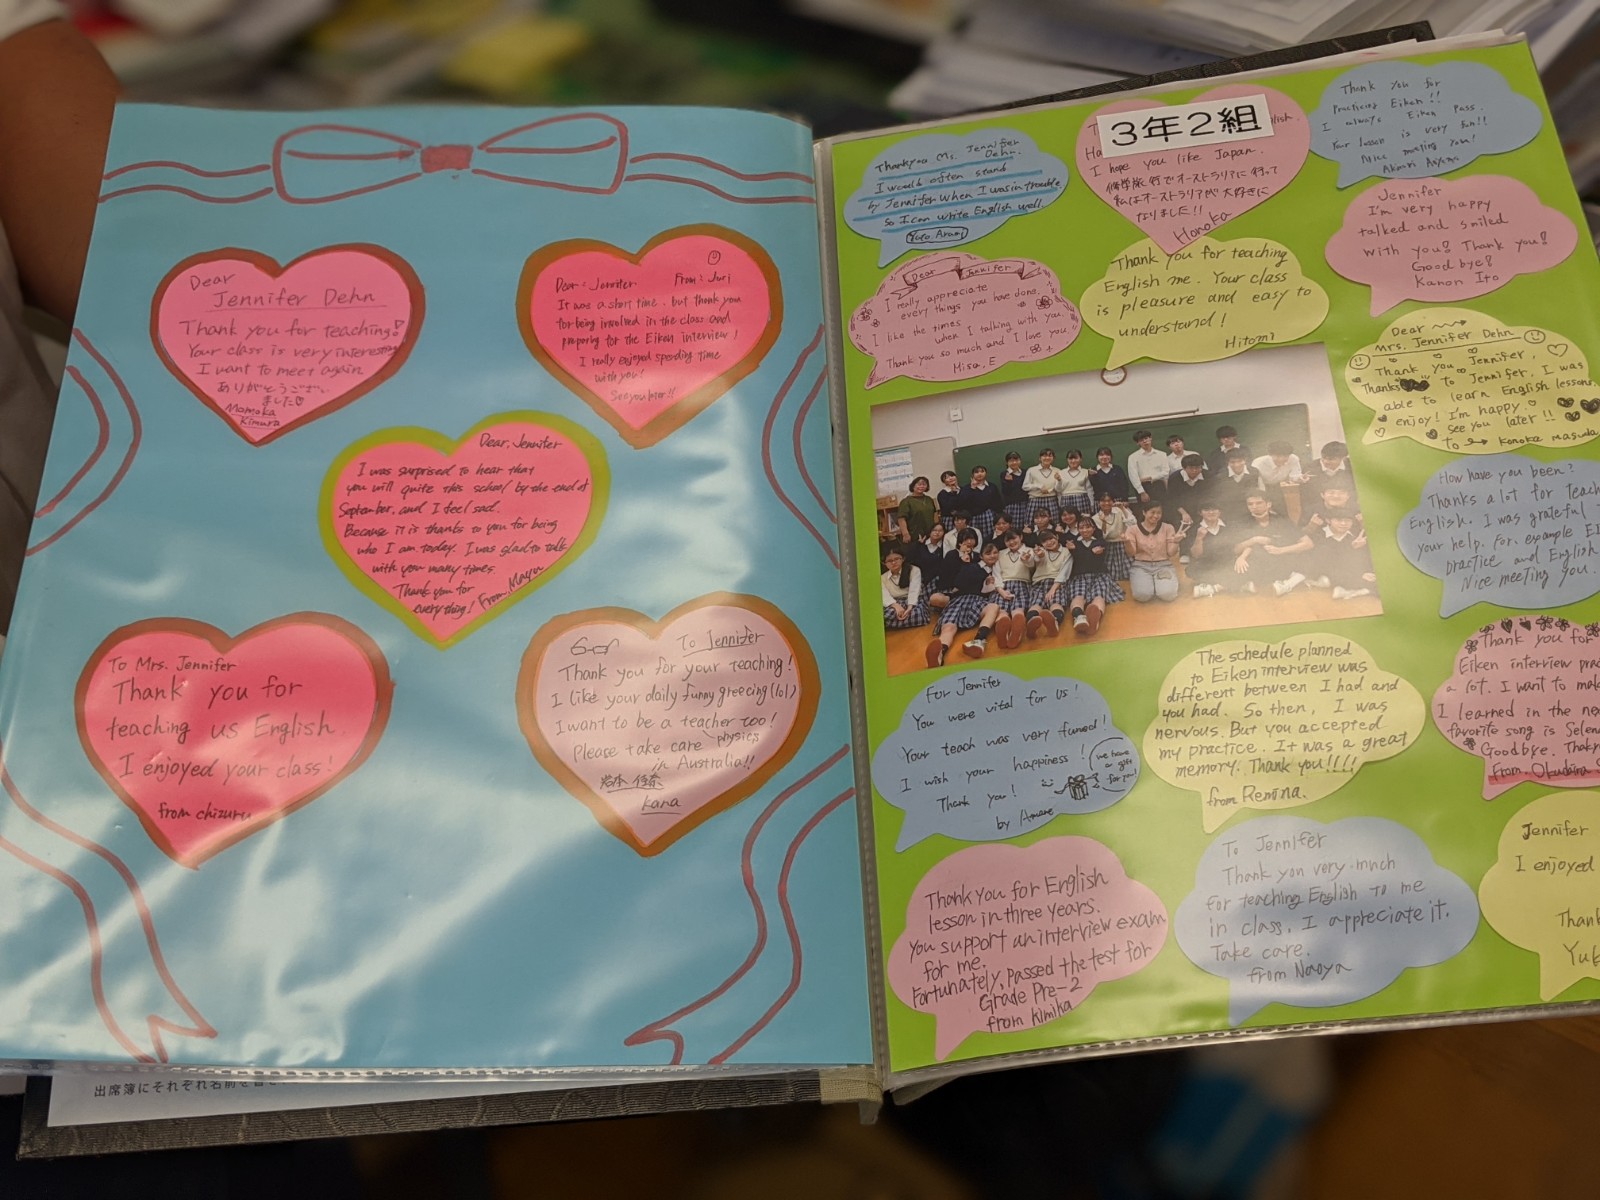 Dear
Jennifer Dehn
Thank you for teaching!
Your class is very interesting
I want to meet again
ありがとうござい
ました
Momoka
Kimura
Dear: Jennifer From: Juri
It was a short time, but thank you
for being involved in the class and
preparing for the Eiken interview!
I really enjoyed spending time
with you!
See you later!!
Dear, Jennifer
I was surprised to hear that
you will quite this school by the end of
September, and I feel sad.
Because it is thanks to you for being
who I am today. I was glad to talk
with you many times
Thank you for
everything! From, Mayu
To Mrs. Jennifer
Thank you for
teaching us English
I enjoyed your class!
from chizuru
To Jennifer
Thank you for your teaching!
I like your daily funny greecing (lol)
I want to be a teacher too!
physics
Please take care
in Australia!!
Kana
出席簿にそれぞれ名前を
3年2組
Thankyou Ms. Jennifer
Dehn.
I would often stand
by Jennifer when I was in trouble
so I can write English well
Yuto Arami
I hope you like Japan.
修学旅行でオーストラリアに行って
私はオーストラリアが大好きに
なりました!!
Honoka
Thank you for
Practicing Eiken!!
I always Eiken pass.
Your lesson is very fun!!
Nice meeting you!
Jennifer
I'm very happy
talked and smiled
with you! Thank you!
Good bye!
Kanon Ito
Dear Jennifer
I really appreciate
every things you have done.
I like the times
when I talking with you.
Thank you so much and I love you
Misa. E
Thank you for teaching
English me. Your class
is pleasure and easy to
understand!
Hitomi
Dear
Mrs. Jennifer Dehn
Thank you Jennifer,
Thanks to Jennifer, I was
able to learn English lessons.
enjoy! I'm happy.
See you later!!
to Konoka Masuda
How have you been?
Thanks a lot for teach
English. I was grateful
your help. For, example
practice and English
Nice meeting you.
For Jennifer
You were vital for us!
Your teach was very funed!
I wish your happiness!
Thank you!
we have
a gift
for you!
by Amane
The schedule planned
to Eiken interview was
different between I had and
you had. So then, I was
nervous. But you accepted
my practice. It was a great
memory. Thank you!!!!
from Remina.
Thank you for
Eiken interview prac
a lot. I want to mak
I learned in the ne
favorite song is Selen
Goodbye.
From. Okudaira
Thank you for English
lesson in three years.
You support an interview exam
for me.
Fortunately, passed the test for
Grade Pre-2
from Kimika
To Jennifer
Thank you very much
for teaching English to me
in class. I appreciate it.
Take care.
from Naoya
Jennifer
I enjoyed
Than
Yu